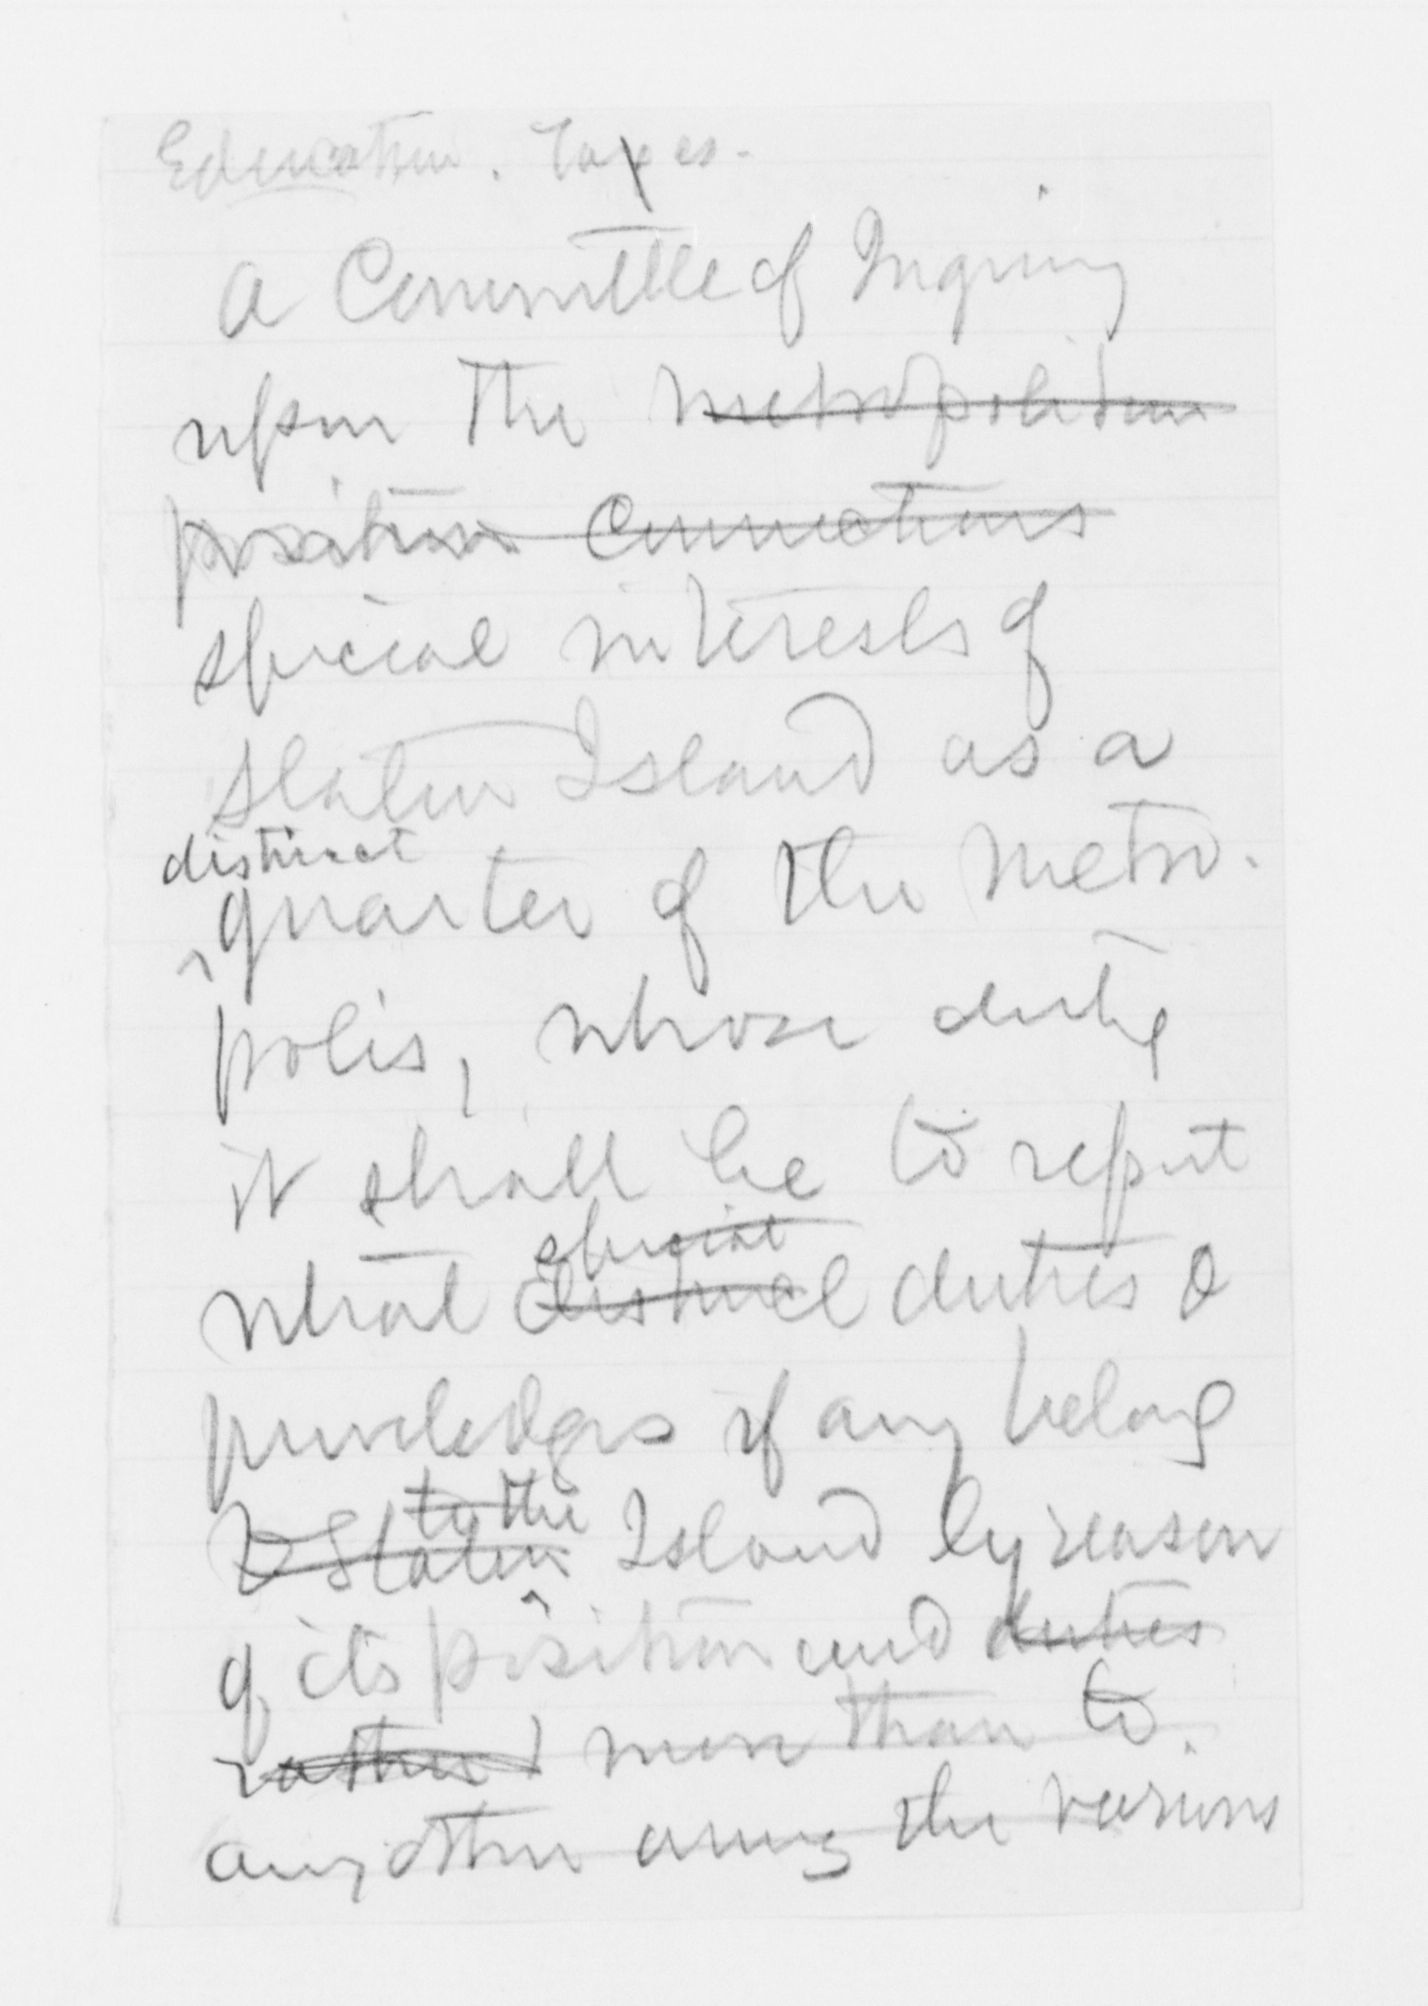 Education. Taxes.
A Committee of Inquiry
upon the metropolitan
position connections
special interests of
Staten Island as a
distinct
quarter of the metro-
polis, whose duty
it shall be to report
special
what distinct duties &
priveledges if any belong
to the
to Staten Island by reason
of its position and duties
rather more than to
any other among the various